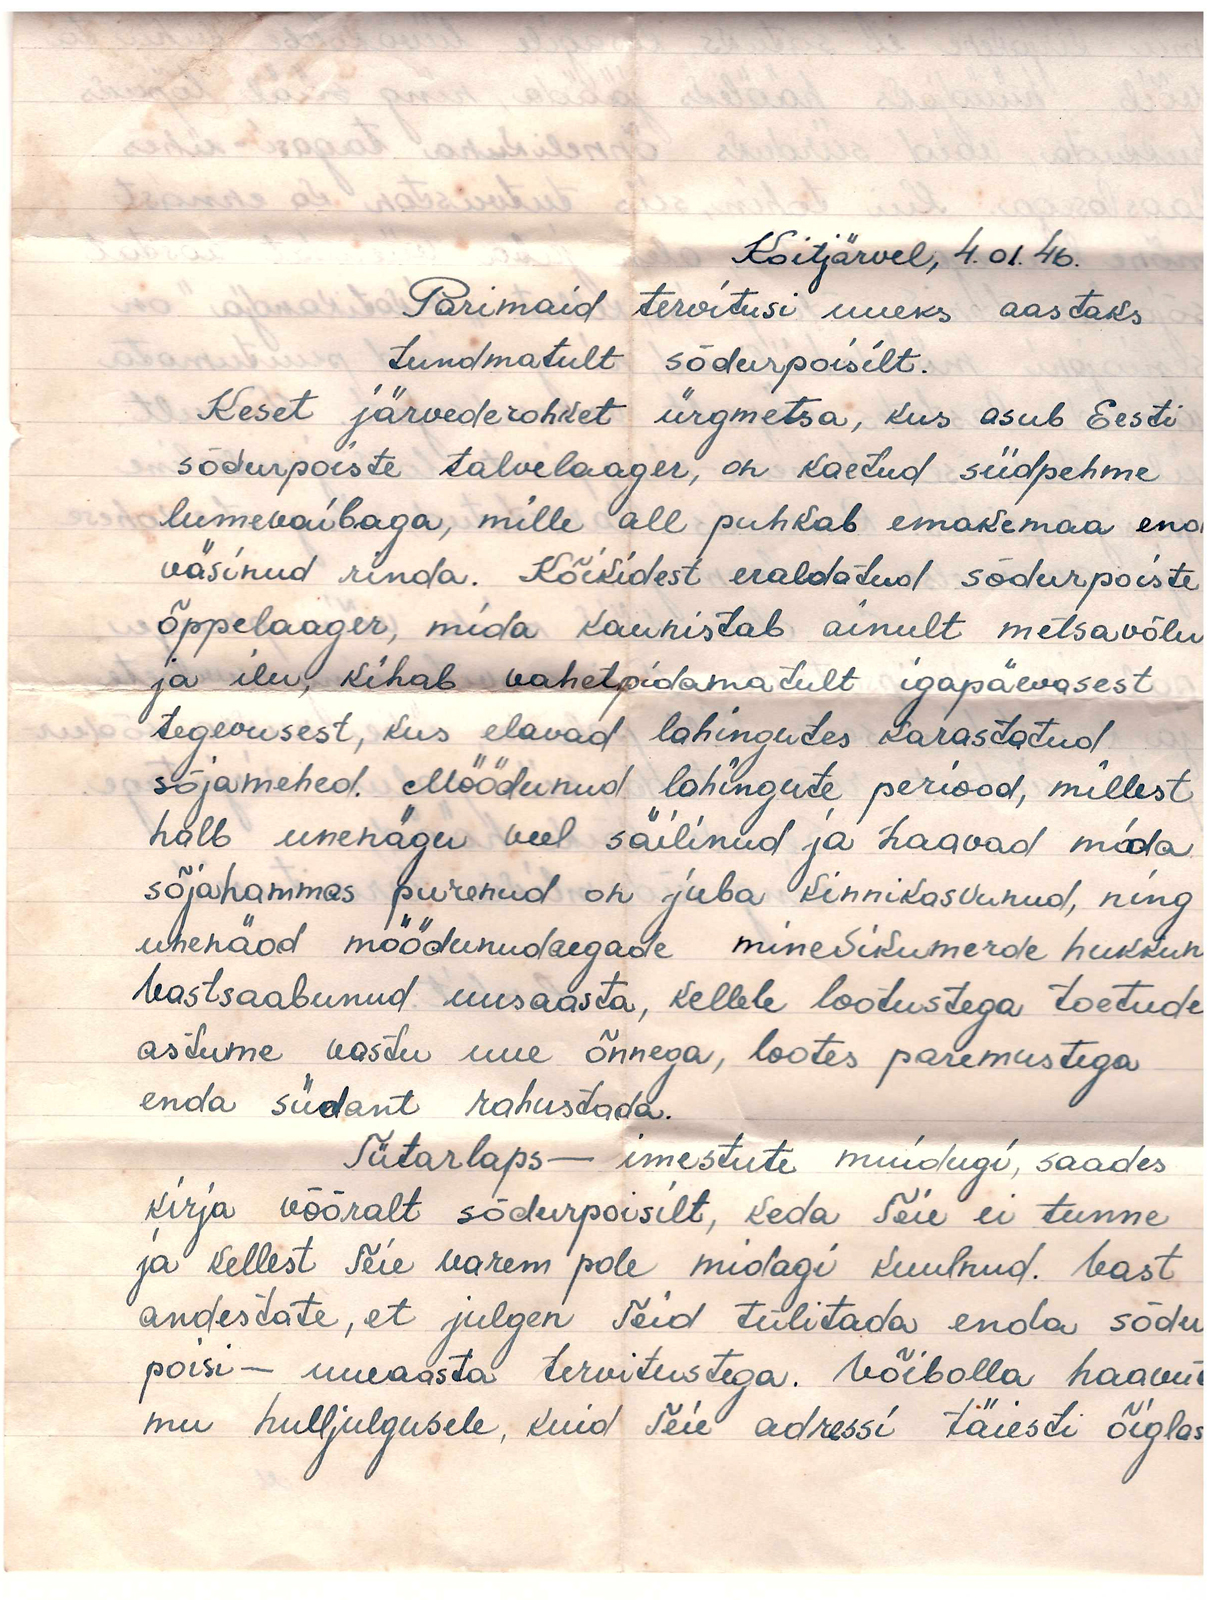 Koitjärvel, 4. 01. 46.
Parimaid tervitusi uueks aastaks
tundmatult sõdurpoisilt.
Keset järvederohket ürgmetsa, kus asub Eesti
sõdurpoiste talvelaager, on kaetud siidpehme
lumevaibaga, mille all puhkab emakemaa end
väsinud rinda. Kõikidest eraldatud sõdurpoiste
õppelaager, mida kaunistab ainult metsavõlu
ja ilu, kihab vahetpidamatult igapäevasest
tegevusest, kus elavad lahingutes karastatud
sõjamehed. Möödunud lahingute periood, millest
halb unenägu veel säilinud ja haavad mida
sõjahammas purenud on juba kinnikasvunud, ning
unenäod möödunudaegade minevikumerde hukkun
Vastsaabunud uusaasta, kellele lootustega toetude
astume vastu uue õnnega, lootes paremustega
enda südant rahustada.
Tütarlaps— imestute muidugi, saades
kirja võõralt sõdurpoisilt, keda Teie ei tunne
ja kellest Teie varem pole midagi kuulnud. Vast
andestate, et julgen Teid tülitada enda sõdu
poisi— uueaasta tervitustega. Võibolla haavu
mu hulljulgusele, kuid Teie adressi täiesti õiglas